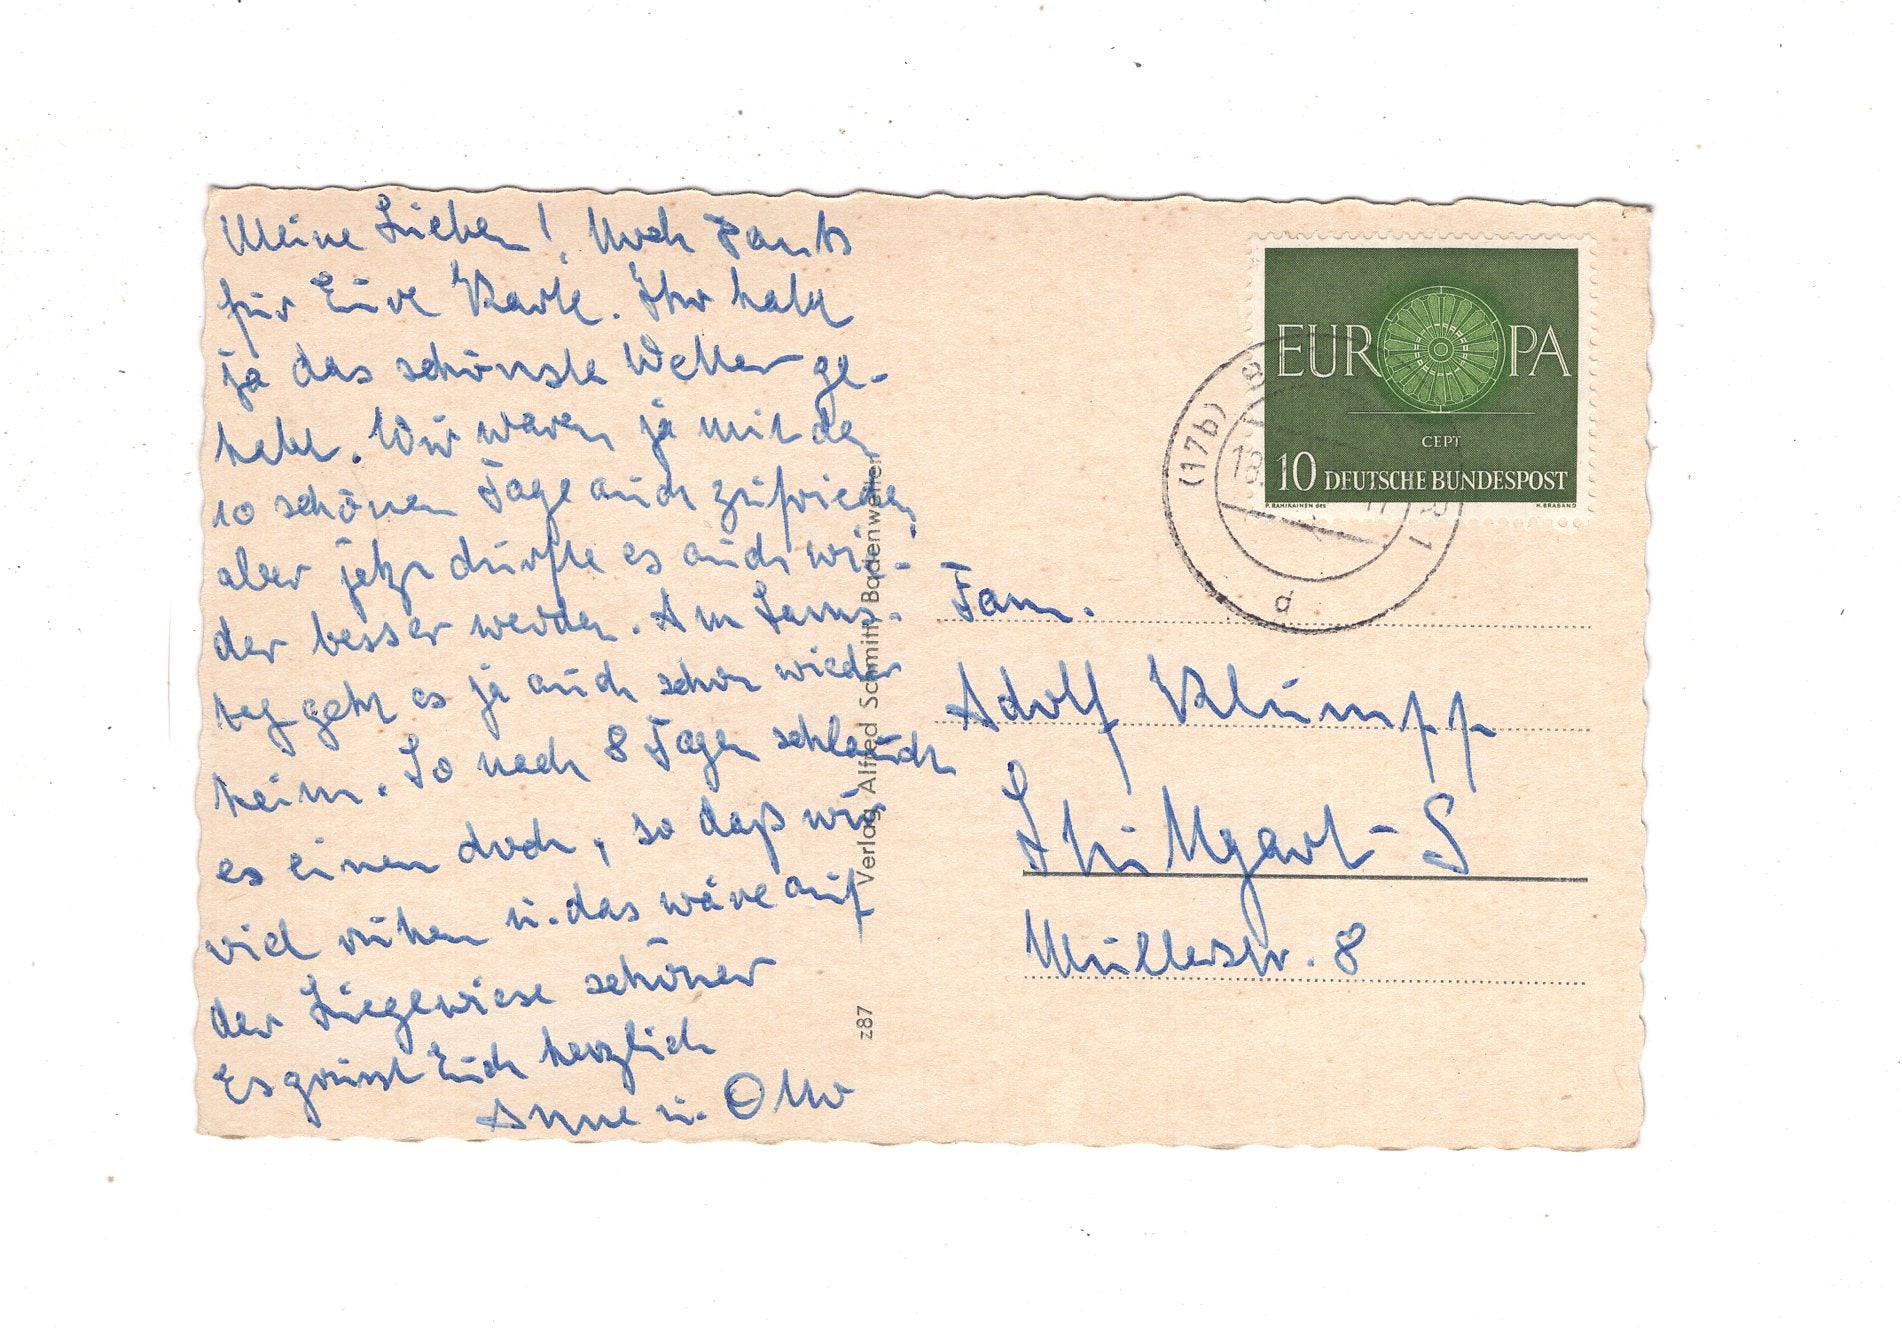 Meine Lieben! Noch Dank
für Eure Karte. Ihr habt
ja das schönste Wetter ge-
habt. Wir waren ja mit den
10 schönen Tage auch zufrieden,
aber jetzt dürfte es auch wie-
der besser werden. Am Sams-
tag geht es ja auch schon wieder
heim. So nach 8 Tagen schlaucht
es einen doch, so daß wir
viel ruhen u. das wäre auf
der Liegewiese schöner
Es grüsst Euch herzlich
Anne u. Otto
Verlag Alfred Schmitt, Badenweiler
z87
EUROPA
CEPT
10 DEUTSCHE BUNDESPOST
P. RAHIKAINEN des
H. BRABAND
(17b)
d
Fam.
Adolf Klumpp
Stuttgart-S
Müllerstr. 8